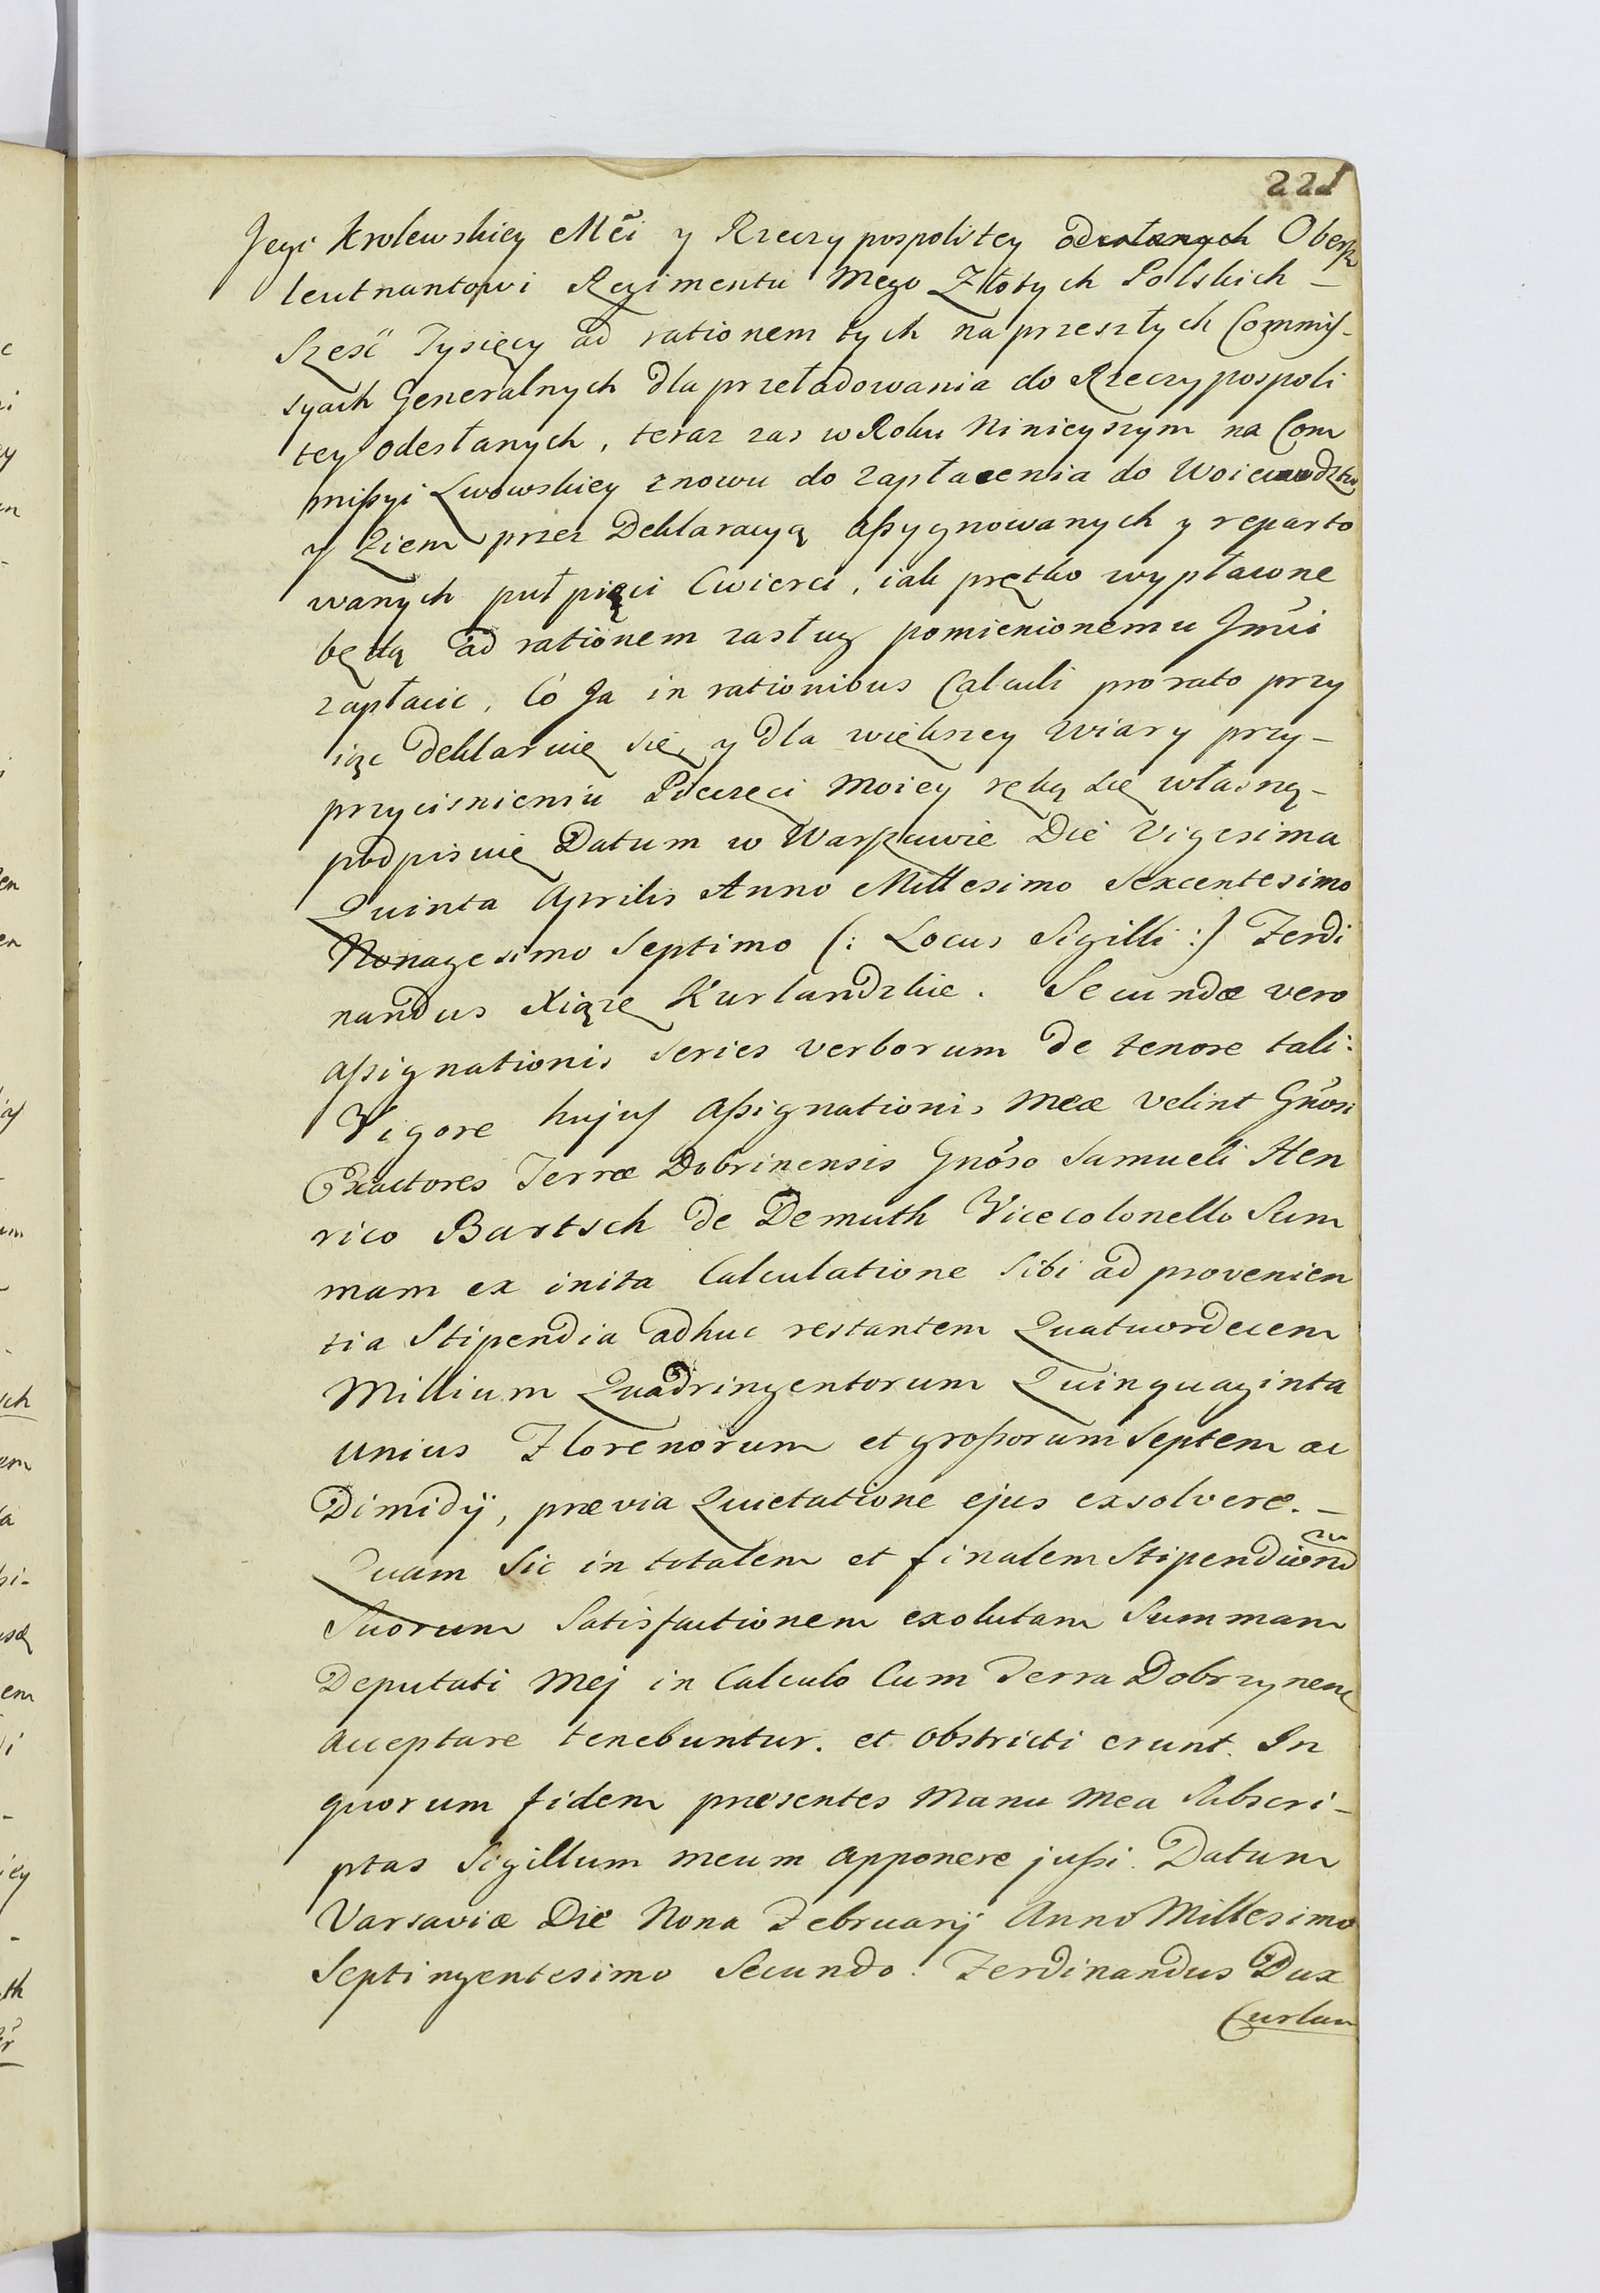 221
Jego Krolewskiey Mći y Rzeczypospolitey odesłanych Oberszt
leutnantowi Regimentu Mego Złotych Polskich –
Sześć Tysięcy ad rationem tych na przeszłych Commis-
syach Generalnych dla przeładowania do Rzeczypospoli
tey odesłanych, teraz zas w Roku Ninieyszym na Com
mißyi Lwowskiey znowu do zapłacenia do Woiewodztw
y Ziem przez Deklaracyą aßygnowanych y reparto
wanych puł pięci Cwierci, iak prętko wypłacone
będą ad rationem zasług pomienionemu Jmći
zapłacic, Co Ja in rationibus Calculi pro rato przy
iąc deklaruię się, y dla większey wiary przy-
przycisnieniu Pieczęci Moiey ręką się własną-
podpisuię Datum w Warszawie Die Vigesima
Quinta Aprilis Anno Millesimo Sexcentesimo
Nonagesimo Septimo (: Locus Sigilli :) Ferdi
nandus Xiąże Kurlandzkie. Secundæ vero
aßignationis Series verborum de tenore tali:
Vigore hujus aßignationis meæ velint Gnosi
Exactores Terræ Dobrinensis Gnoso Samueli Hen
rico Bartsch de Demuth Vicecolonello Sum
mam ex inita Calculatione sibi ad provenien
tia Stipendia adhuc restantem Quatuordecem
Millium Quadringentorum Quinquaginta
unius Florenorum et großorum Septem ac
Dimidij, prævia Quietatione ejus exsolvere. –
Quam sic in totalem et finalem Stipendiorũ
Suorum Satisfactionem exolutam Summam
Deputati Mej in Calculo Cum Terra Dobrzynen
acceptare tenebuntur. et obstricti erunt. In
quorum fidem præsentes Manu Mea Subscri-
ptas Sigillum meum apponere jußi. Datum
Varsaviæ Die Nona Februarij Anno Millesimo
Septingentesimo Secundo. Ferdinandus Dux
Curlan